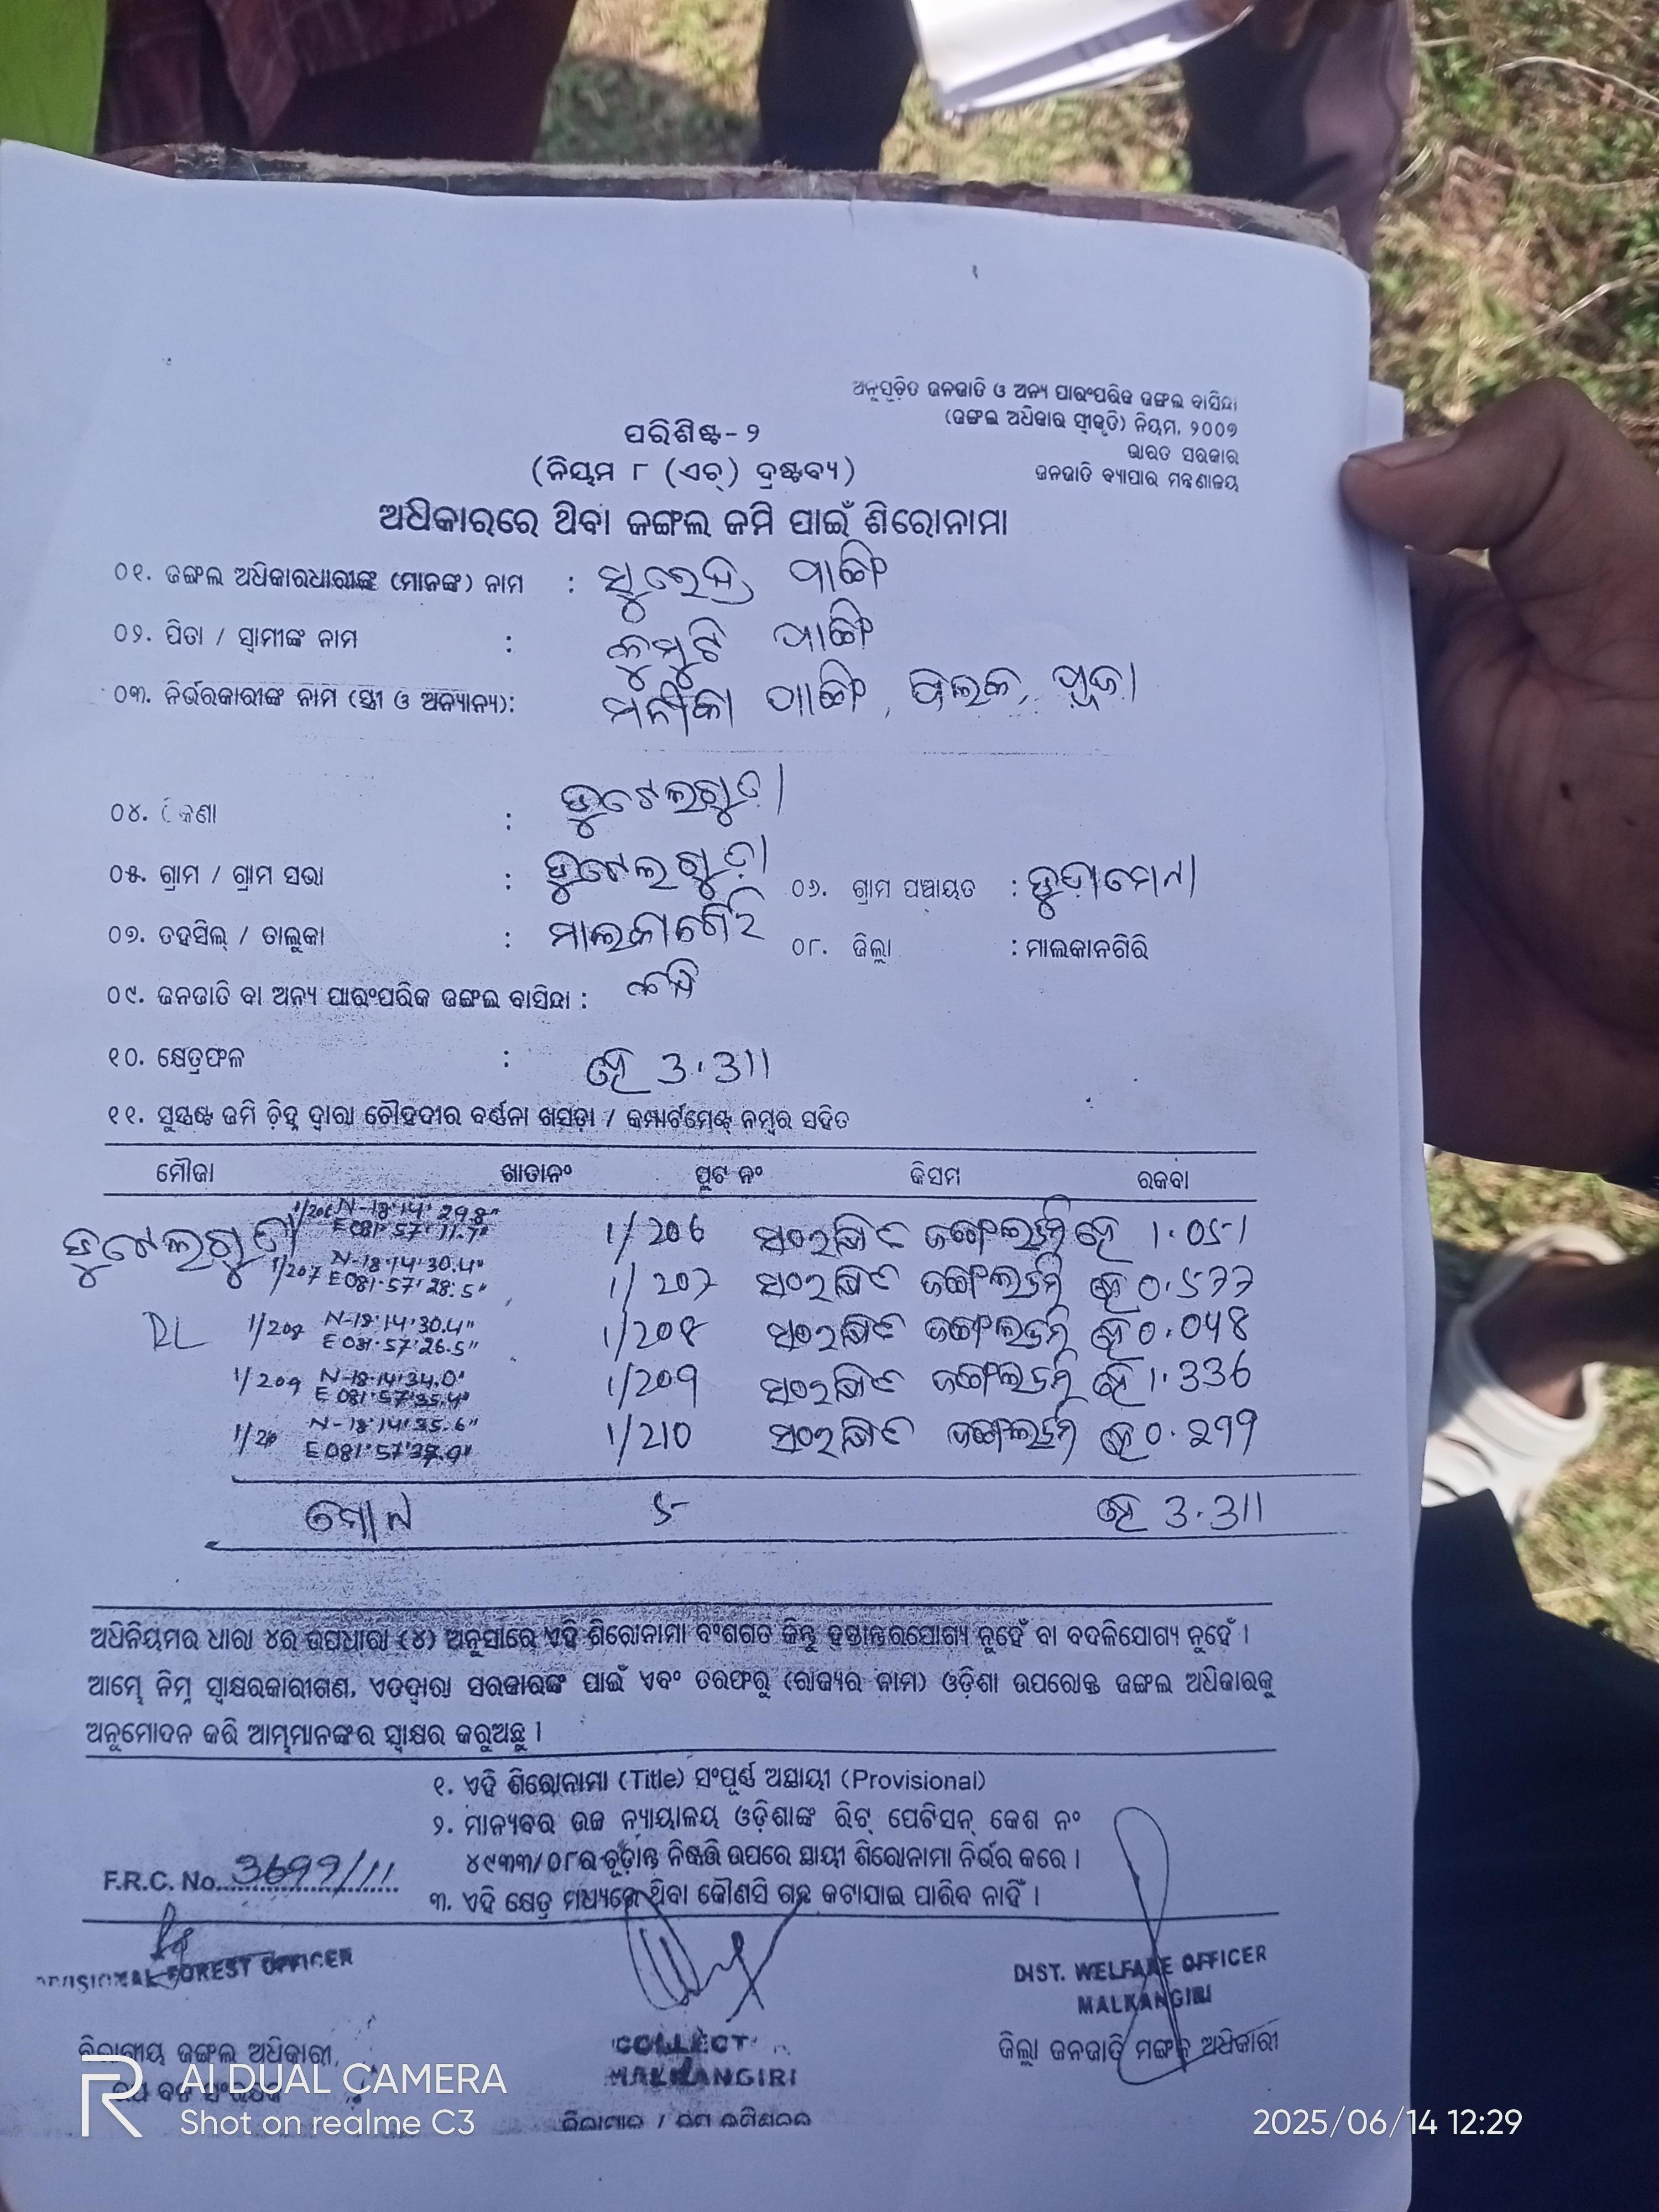 ଅନୁସୂଚିତ ଜନଜାତି ଓ ଅନ୍ୟ ପାରଂପରିକ ଜଙ୍ଗଲ ବାସିନ୍ଦା
(ଜଙ୍ଗଲ ଅଧିକାର ସ୍ୱୀକୃତି) ନିୟମ, ୨୦୦୭
ଭାରତ ସରକାର
ଜନଜାତି ବ୍ୟାପାର ମନ୍ତ୍ରଣାଳୟ
ପରିଶିଷ୍ଟ-୨
(ନିୟମ ୮ (ଏଚ୍) ଦ୍ରଷ୍ଟବ୍ୟ)
ଅଧିକାରରେ ଥିବା ଜଙ୍ଗଲ ଜମି ପାଇଁ ଶିରୋନାମା
୦୧. ଜଙ୍ଗଲ ଅଧିକାରଧାରୀଙ୍କ (ମାନଙ୍କ) ନାମ : ସୁରେନ୍ଦ୍ର
୦୨. ପିତା / ସ୍ୱାମୀଙ୍କ ନାମ :
୦୩. ନିର୍ଭରକାରୀଙ୍କ ନାମ (ସ୍ତ୍ରୀ ଓ ଅନ୍ୟାନ୍ୟ):
୦୪. ଠିକଣା :
୦୫. ଗ୍ରାମ / ଗ୍ରାମ ସଭା : ୦୬. ଗ୍ରାମ ପଞ୍ଚାୟତ :
୦୭. ତହସିଲ୍ / ତାଲୁକା : ୦୮. ଜିଲ୍ଲା : ମାଲକାନଗିରି
୦୯. ଜନଜାତି ବା ଅନ୍ୟ ପାରଂପରିକ ଜଙ୍ଗଲ ବାସିନ୍ଦା :
୧୦. କ୍ଷେତ୍ରଫଳ : ହେ 3.311
୧୧. ସୁସ୍ପଷ୍ଟ ଜମି ଚିହ୍ନ ଦ୍ୱାରା ଚୌହଦୀର ବର୍ଣ୍ଣନା ଖସଡ଼ା / କମ୍ପାର୍ଟମେଣ୍ଟ ନମ୍ବର ସହିତ
ମୌଜା ଖାତାନଂ ପ୍ଲଟ ନଂ କିସମ ରକବା
1/206 N-18°14'29.8" 1/206 ସଂରକ୍ଷିତ ଜଙ୍ଗଲଜମି ହେ 1.051
1/207 N-18°14'30.4" E081°57'28.5" 1/207 ସଂରକ୍ଷିତ ଜଙ୍ଗଲଜମି ହେ 0.577
1/208 N-18°14'30.4" E081°57'26.5" 1/208 ସଂରକ୍ଷିତ ଜଙ୍ଗଲଜମି ହେ 0.048
1/209 N-18°14'34.0" E081°57'35.4" 1/209 ସଂରକ୍ଷିତ ଜଙ୍ଗଲଜମି ହେ 1.336
N-18°14'35.6" 1/210 ସଂରକ୍ଷିତ ଜଙ୍ଗଲଜମି ହେ 0.299
5 ହେ 3.311
ଅଧିନିୟମର ଧାରା ୪ର ଉପଧାରା (୪) ଅନୁସାରେ ଏହି ଶିରୋନାମା ବଂଶଗତ କିନ୍ତୁ ହସ୍ତାନ୍ତରଯୋଗ୍ୟ ନୁହେଁ ବା ବଦଳିଯୋଗ୍ୟ ନୁହେଁ ।
ଆମ୍ଭେ ନିମ୍ନ ସ୍ୱାକ୍ଷରକାରୀଗଣ, ଏତଦ୍ଦ୍ୱାରା ସରକାରଙ୍କ ପାଇଁ ଏବଂ ତରଫରୁ (ରାଜ୍ୟର ନାମ) ଓଡ଼ିଶା ଉପରୋକ୍ତ ଜଙ୍ଗଲ ଅଧିକାରକୁ
ଅନୁମୋଦନ କରି ଆମ୍ଭମାନଙ୍କର ସ୍ୱାକ୍ଷର କରୁଅଛୁ ।
୧. ଏହି ଶିରୋନାମା (Title) ସଂପୂର୍ଣ୍ଣ ଅସ୍ଥାୟୀ (Provisional)
୨. ମାନ୍ୟବର ଉଚ୍ଚ ନ୍ୟାୟାଳୟ ଓଡ଼ିଶାଙ୍କ ରିଟ୍ ପେଟିସନ୍ କେଶ ନଂ
୪୯୩୩/୦୮ର ଚୂଡ଼ାନ୍ତ ନିଷ୍ପତ୍ତି ଉପରେ ସ୍ଥାୟୀ ଶିରୋନାମା ନିର୍ଭର କରେ ।
F.R.C. No. 3699/11
୩. ଏହି କ୍ଷେତ୍ର ମଧ୍ୟରେ ଥିବା କୌଣସି ଗଛ କଟାଯାଇ ପାରିବ ନାହିଁ ।
FOREST OFFICER
DIST. WELFARE OFFICER
MALKANGIRI
ବିଭାଗୀୟ ଜଙ୍ଗଲ ଅଧିକାରୀ,
ଜିଲ୍ଲା ଜନଜାତି ମଙ୍ଗଳ ଅଧିକାରୀ
MALKANGIRI
AI DUAL CAMERA
Shot on realme C3
2025/06/14 12:29